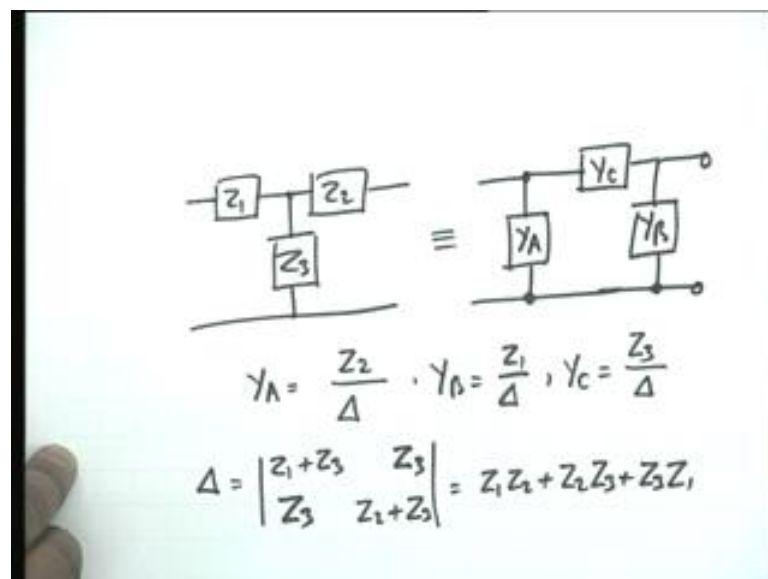 Z₁ Z₂ Y_C
Z₃ ≡ Y_A Y_B
Y_A = Z₂/Δ , Y_B = Z₁/Δ , Y_C = Z₃/Δ
Δ = |Z₁+Z₃ Z₃|
|Z₃ Z₂+Z₃| = Z₁Z₂+Z₂Z₃+Z₃Z₁